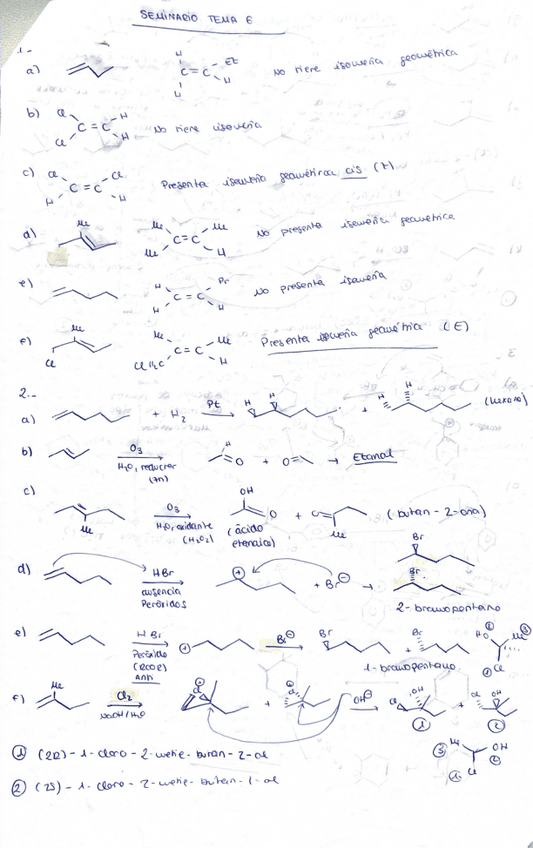 SEMINARIO TEMA 6
1.-
a) H H C = C Et H No tiene isomería geométrica
b) Cl Cl C = C H H No tiene isomería
c) Cl H C = C Cl H Presenta isomería geométrica cis (Z)
d) Me Me Me C = C Me H No presenta isomería geométrica
e) H H C = C Pr H No presenta isomería
f) Me Cl Me ClH2C C = C Me H Presenta isomería geométrica (E)
2.-
a) + H2 Pt H H + H H (hexano)
b) O3 H2O, reductor (Zn) H O + O → Etanal
c) Me O3 H2O, oxidante (H2O2) OH O (ácido etanoico) + O Me (butan-2-ona)
d) HBr ausencia Peróxidos + + Br⊖ → Br Br 2-bromopentano
e) HBr Peróxido (ROOR) + Br⊖ Br + Br 1-bromopentano HO Me Cl
f) Me Cl2 NaOH/H2O Cl + Cl OH⊖ Cl OH ① + Cl OH ②
① (2R)-1-cloro-2-metil-butan-2-ol ③ Me OH ② Cl ①
② (2S)-1-cloro-2-metil-butan-1-ol